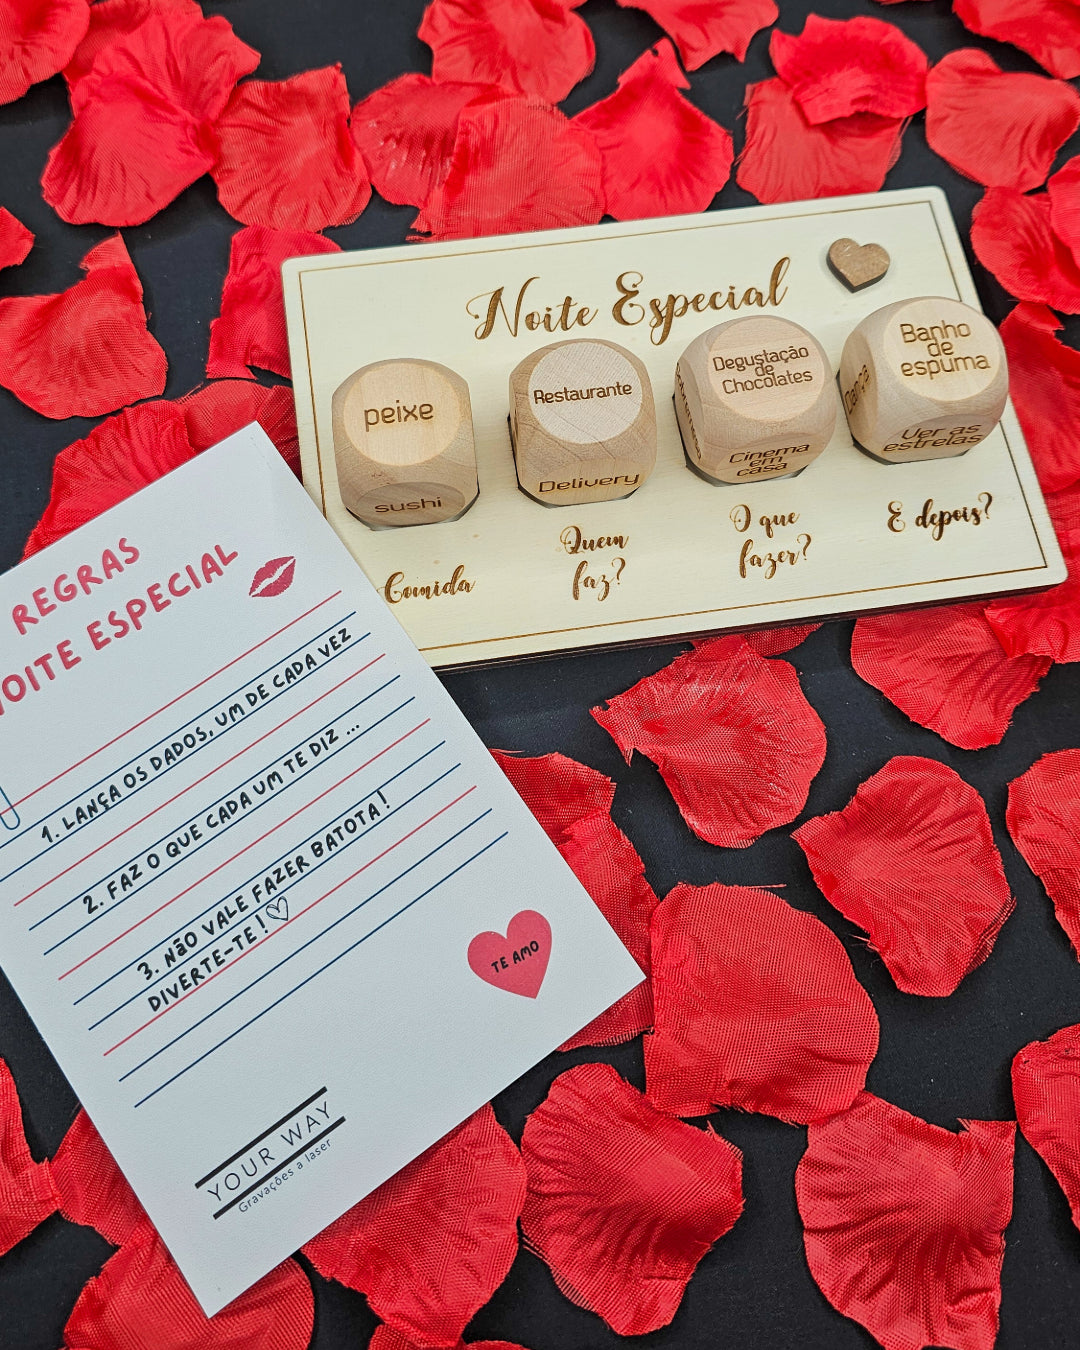 Noite Especial
peixe
sushi
Restaurante
Delivery
Degustação
de
Chocolates
Cinema
em
casa
Banho
de
espuma
Dança
Ver as
estrelas
Comida
Quem
faz?
O que
fazer?
E depois?
REGRAS
NOITE ESPECIAL
1. LANÇA OS DADOS, UM DE CADA VEZ
2. FAZ O QUE CADA UM TE DIZ ...
3. NãO VALE FAZER BATOTA!
DIVERTE-TE!
TE AMO
YOUR WAY
Gravações a laser